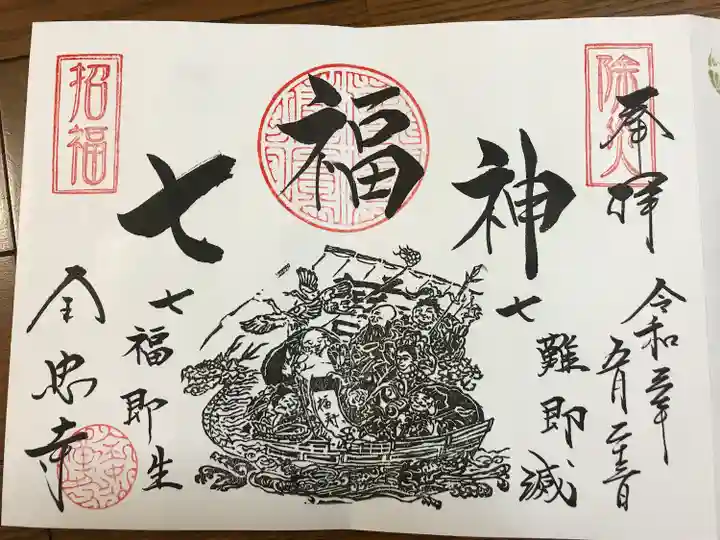 除災
奉拝
令和三年
五月二十三日
七福神
七難即滅
七福即生
招福
全忠寺